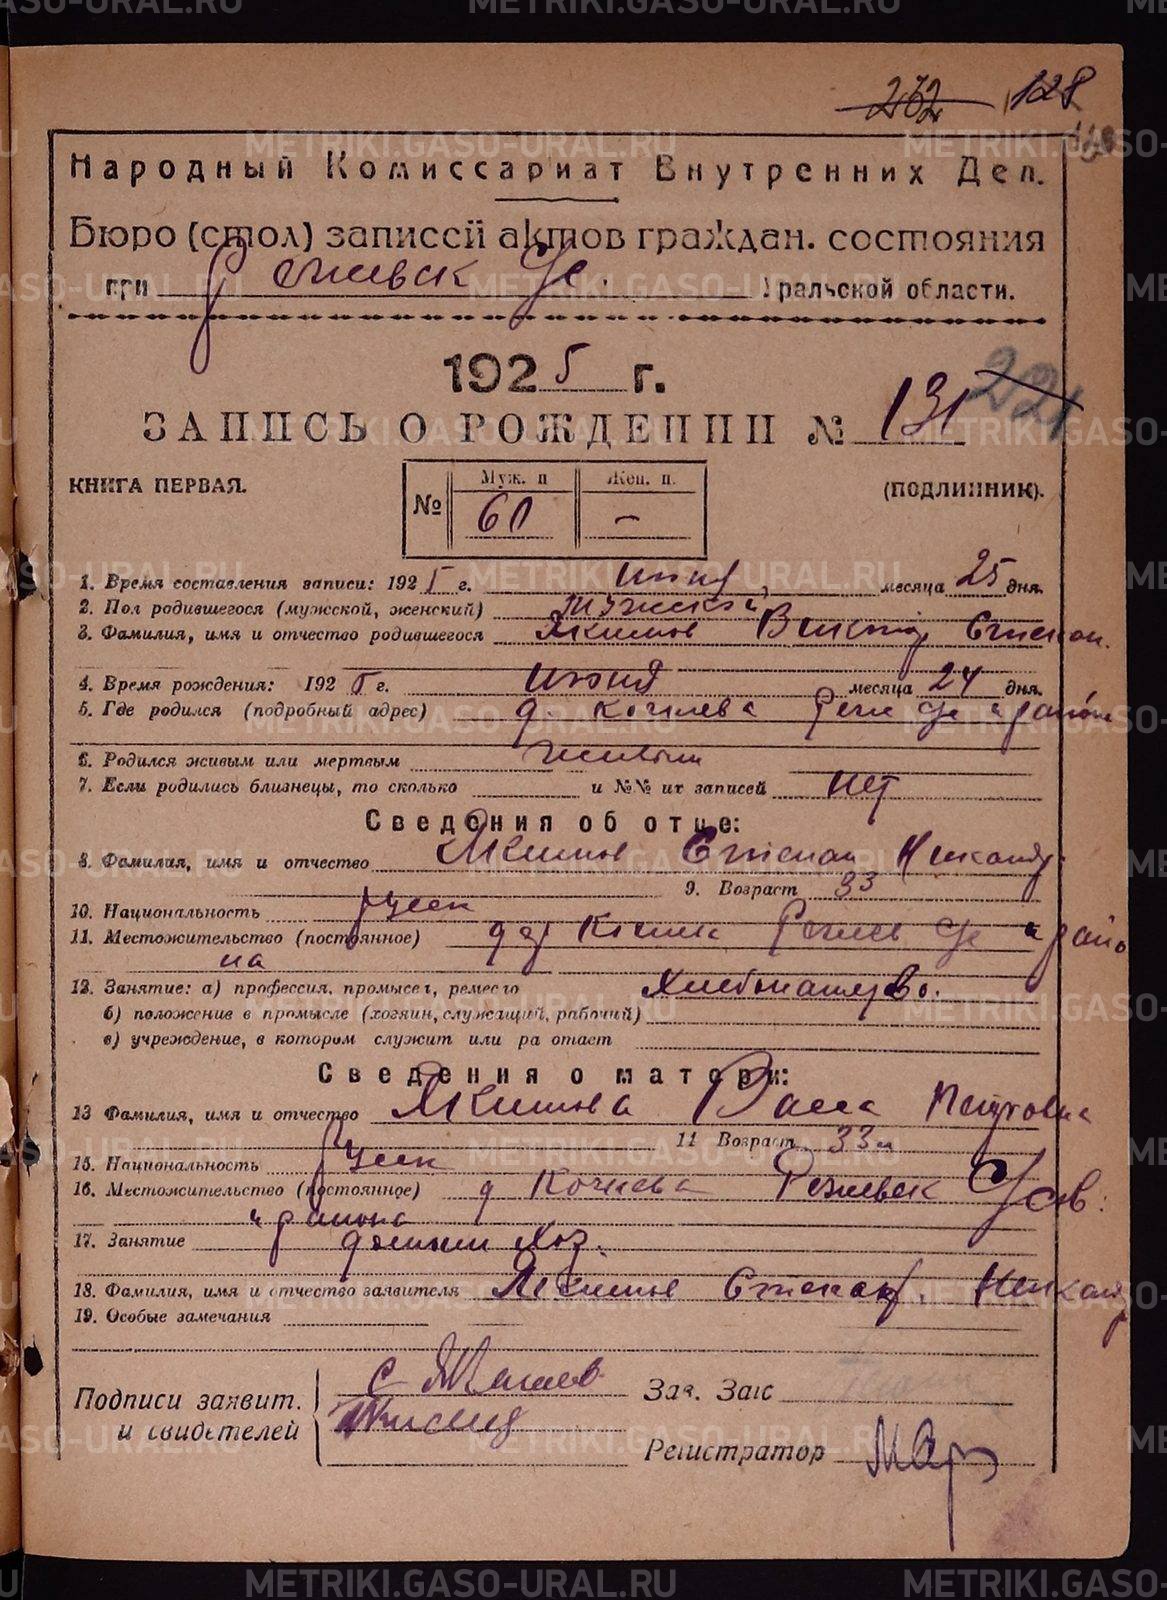 232 128
Народный Комиссариат Внутренних Дел.
Бюро (стол) записей актов граждан. состояния
при Режевск Ус. Уральской области.
1925 г.
221
ЗАПИСЬ О РОЖДЕНИИ № 131
КНИГА ПЕРВАЯ.
(ПОДЛИННИК).
Муж. п Жен. п.
№ 60 –
1. Время составления записи: 1925 г. июня месяца 25 дня.
2. Пол родившегося (мужской, женский) мужской
3. Фамилия, имя и отчество родившегося Якимов Степан.
4. Время рождения: 1925 г. июня месяца 24 дня.
5. Где родился (подробный адрес) д. Кочнева Реж Ус и района
6. Родился живым или мертвым живым
7. Если родились близнецы, то сколько и №№ их записей нет
Сведения об отце:
8. Фамилия, имя и отчество Якимов Степан Никандр.
9. Возраст 33
10. Национальность русск
11. Местожительство (постоянное) дер Режев Ус и райо
на
12. Занятие: а) профессия, промысел, ремесло Хлебопашество.
б) положение в промысле (хозяин, служащий, рабочий)
в) учреждение, в котором служит или работает
Сведения о матери:
13 Фамилия, имя и отчество Якимова Васса Петровна
14 Возраст 33
15. Национальность русск
16. Местожительство (постоянное) д Кочнева Режевск Усов.
и района
17. Занятие домаш хоз.
18. Фамилия, имя и отчество заявителя Якимов Степан Никандр
19. Особые замечания
Подписи заявит. С Якимов Зав. Загс
и свидетелей
Регистратор
METRIKI.GASO-URAL.RU